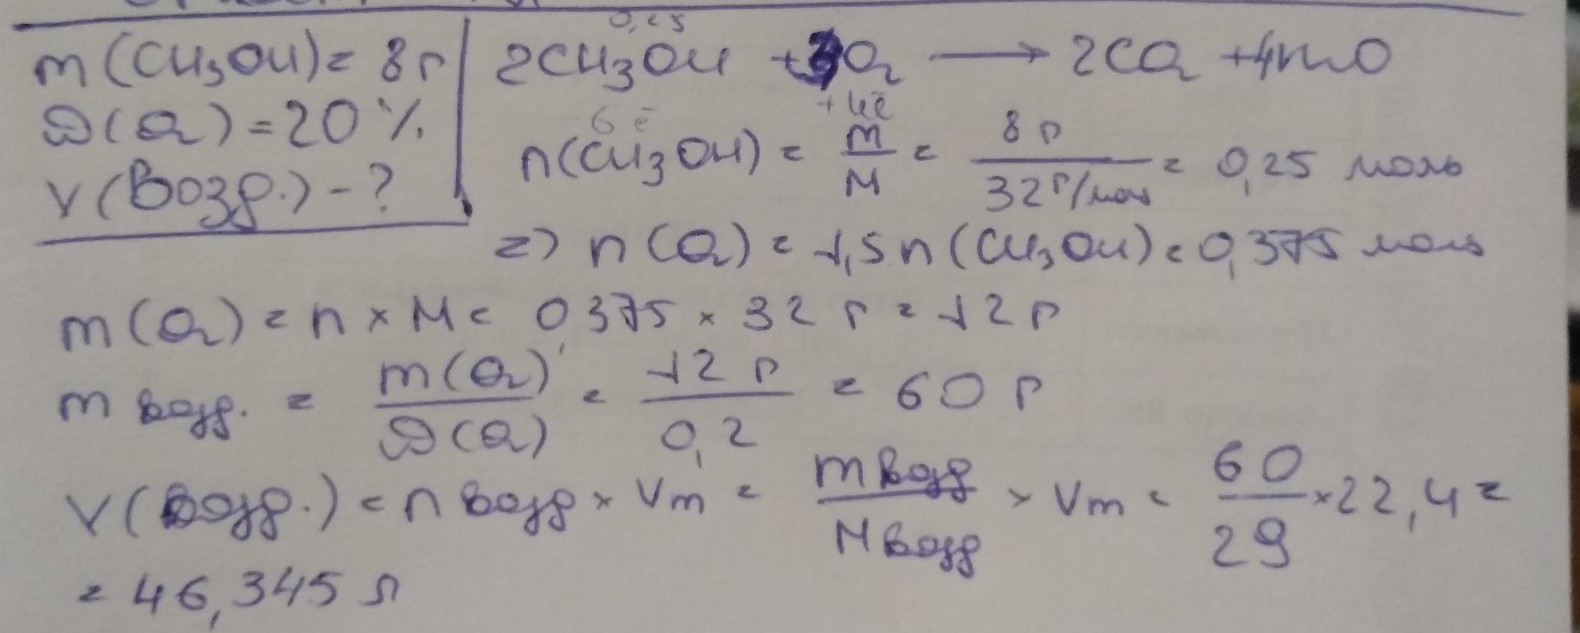 m(CH₃OH)= 8г
ω(O₂)=20%
V(Возд.)-?
0,25
2CH₃OH +3O₂ ⟶ 2CO₂ +4H₂O
6ē
+4ē
n(CH₃OH) = m/M = 8г/32г/моль = 0,25 моль
=> n(O₂) = 1,5n(CH₃OH) = 0,375 моль
m(O₂) = n × M = 0375 × 32 г = 12г
m возд. = m(O₂)/ω(O₂) = 12 г/0,2 = 60 г
V(Возд.) = n возд × Vm = m возд/M возд × Vm = 60/29 × 22,4 =
= 46,345 л